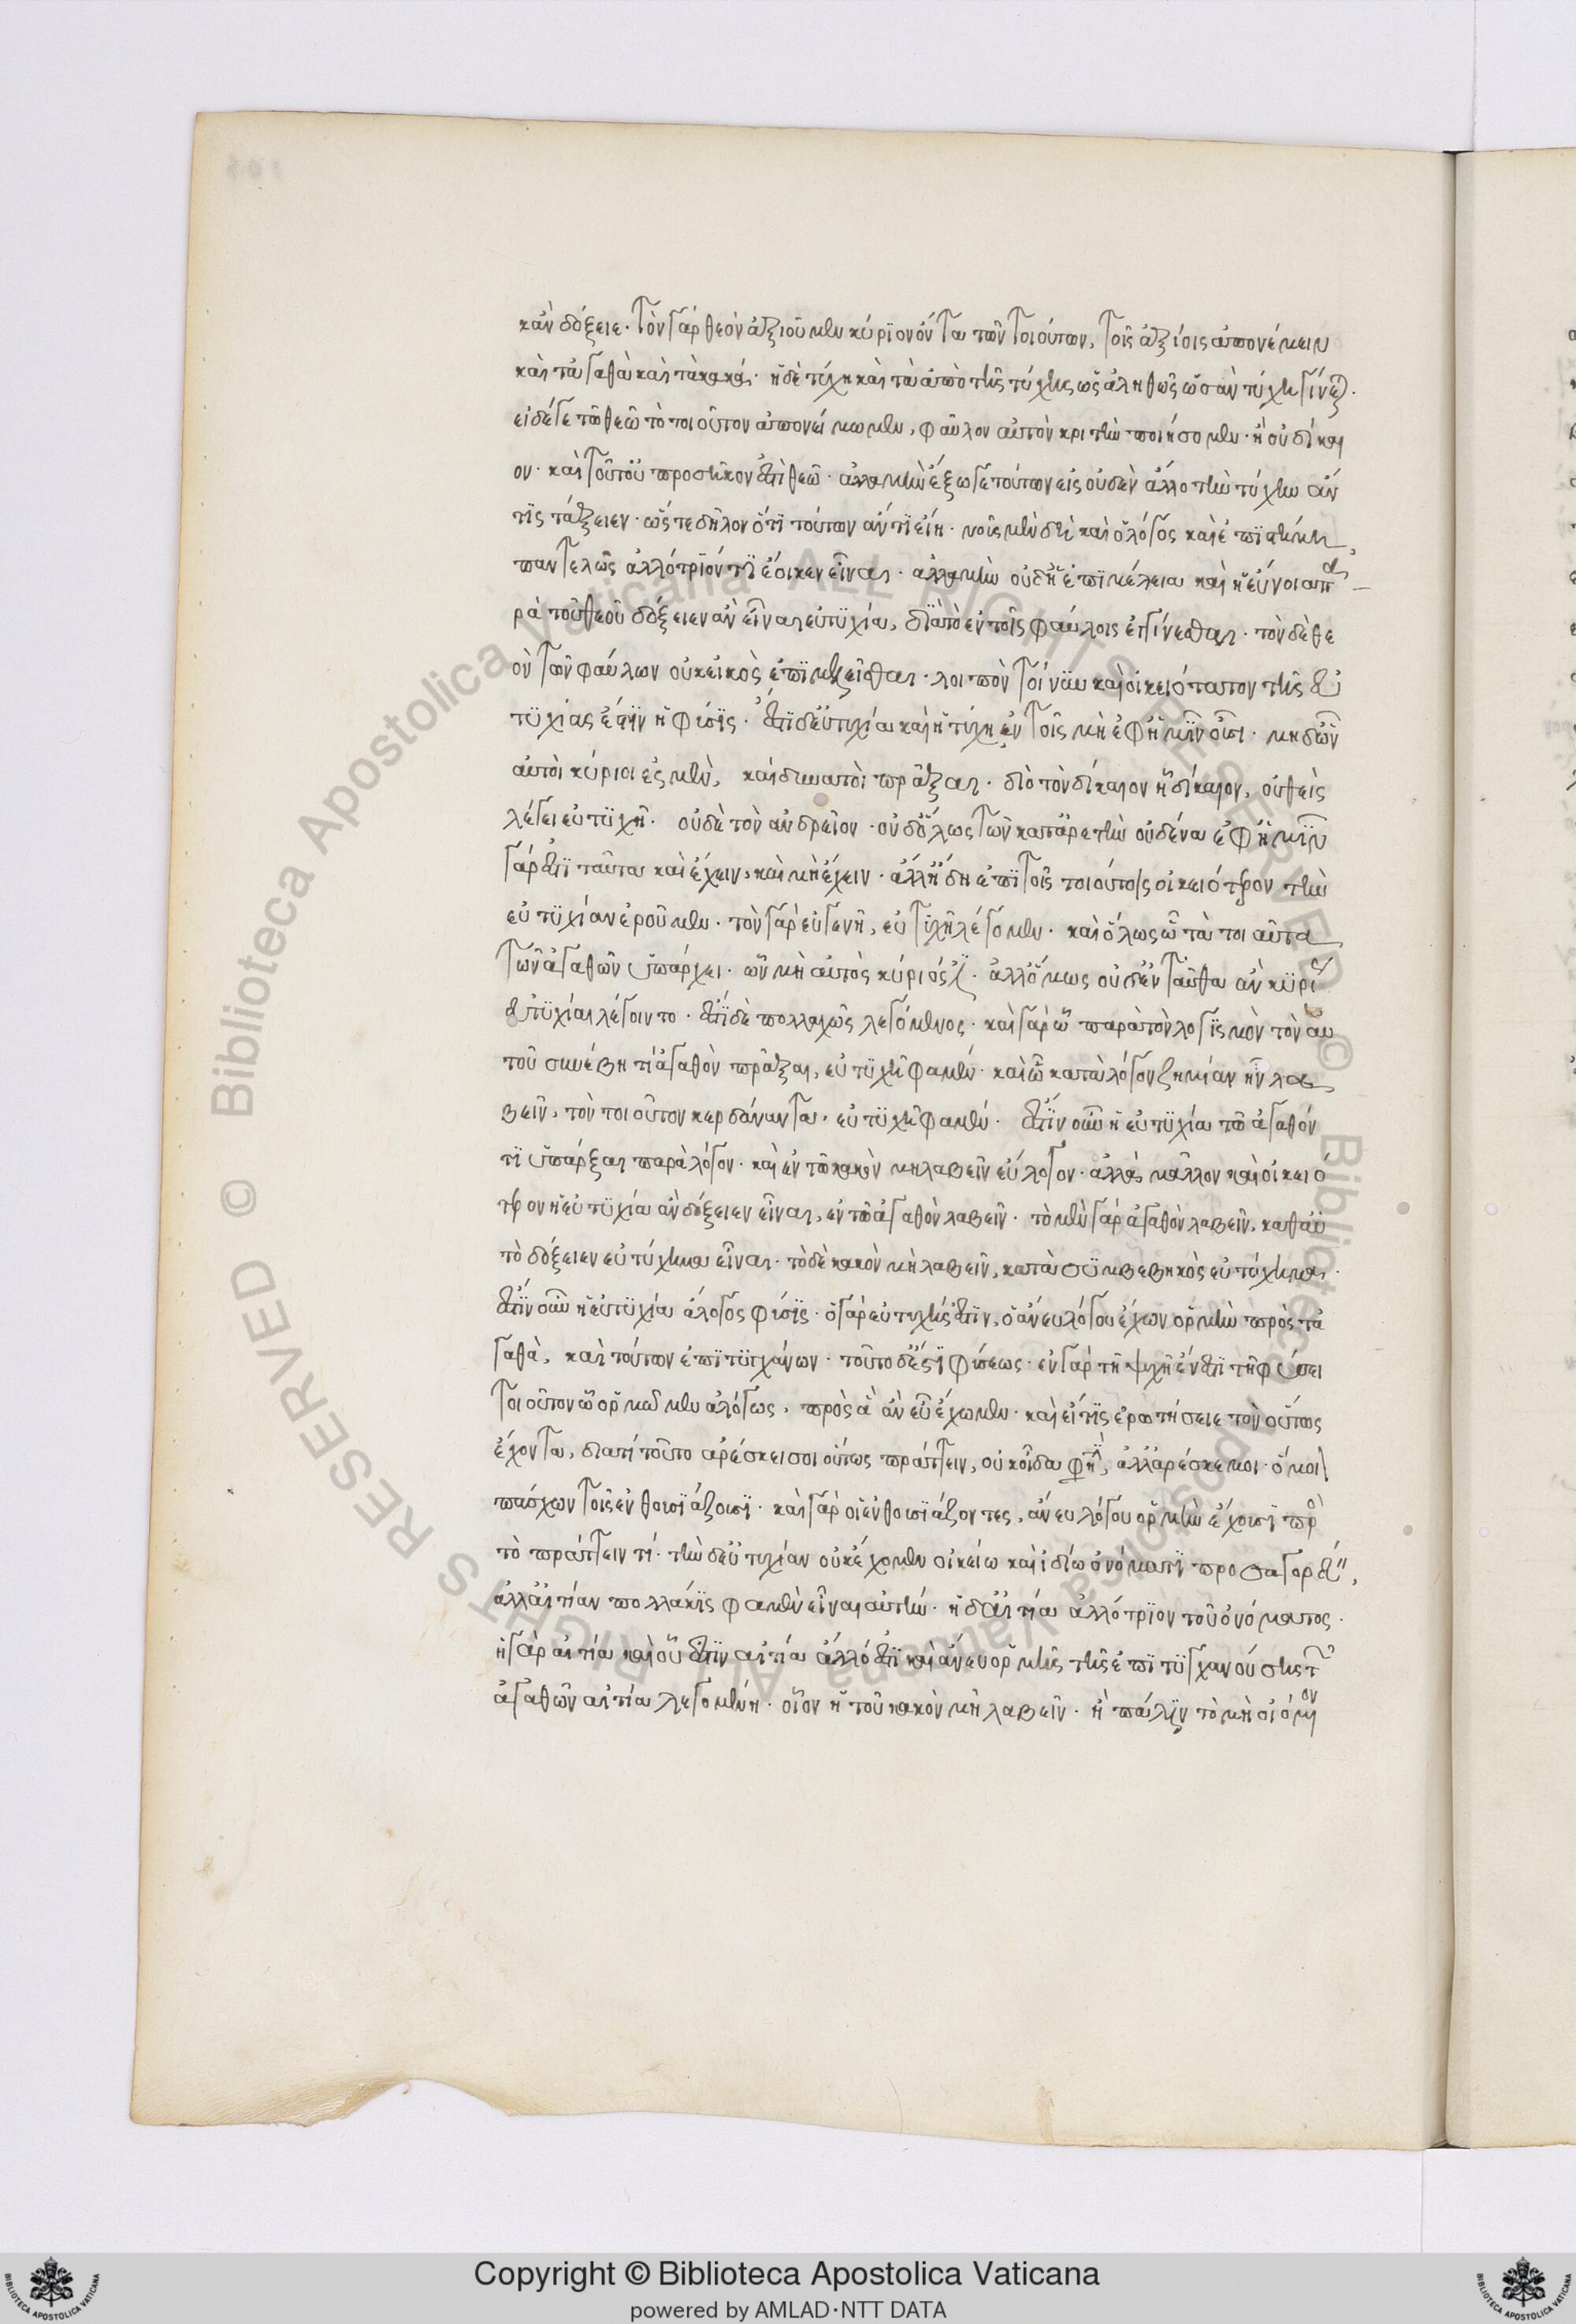 κἂν δόξειε· τὸν γὰρ θεὸν ἀξιοῦμεν κύριον ὄντα τῶν τοιούτων, τοῖς ἀξίοις ἀπονέμειν
καὶ τἀγαθὰ καὶ τὰ κακά· ἡ δὲ τύχη καὶ τὰ ἀπὸ τῆς τύχης ὡς ἀληθῶς ὡς ἂν τύχη γίνεται·
εἰ δέ γε τῷ θεῷ τὸ τοιοῦτον ἀπονείμωμεν, φαῦλον αὐτὸν κριτὴν ποιήσομεν· ἢ οὐ δίκαι
ον· καὶ τοῦτ' οὐ προσῆκον ἐστὶ θεῷ· ἀλλὰ μὴν ἔξω γε τούτων εἰς οὐδὲν ἄλλο τὴν τύχην ἄν
τις τάξειεν· ὥστε δῆλον ὅτι τούτων ἄν τι εἴη· νοῦς μὲν δὴ καὶ ὁ λόγος καὶ ἐπιστήμη,
παντελῶς ἀλλότριόν τι ἔοικεν εἶναι· ἀλλὰ μὴν οὐδ' ἡ ἐπιμέλεια καὶ ἡ εὔνοια πα
ρὰ τοῦ θεοῦ δόξειεν ἂν εἶναι εὐτυχία, διὰ τὸ ἐν τοῖς φαύλοις ἐγγίνεσθαι· τὸν δὲ θε
ὸν τῶν φαύλων οὐκ εἰκὸς ἐπιμελεῖσθαι· λοιπὸν τοίνυν καὶ οἰκειότατον τῆς εὐ
τυχίας ἐστὶν ἡ φύσις· ἔστι δ' εὐτυχία καὶ ἡ τύχη ἐν τοῖς μὴ ἐφ' ἡμῖν οὖσι· μηδ' ὧν
αὐτοὶ κύριοι ἐσμὲν, καὶ δυνατοὶ πρᾶξαι· διὸ τὸν δίκαιον ἧ δίκαιον, οὐθεὶς
λέγει εὐτυχῆ· οὐδὲ τὸν ἀνδρεῖον· οὐδ' ὅλως τῶν κατ' ἀρετὴν οὐδένα ἐφ' ἡμῖν
γάρ ἐστι ταῦτα καὶ ἔχειν, καὶ μὴ ἔχειν· ἀλλ' ἤδη ἐπὶ τοῖς τοιούτοις οἰκειότερον τὴν
εὐτυχίαν ἐροῦμεν· τὸν γὰρ εὐγενῆ, εὐτυχῆ λέγομεν· καὶ ὅλως ᾧ τὰ τοιαῦτα
τῶν ἀγαθῶν ὑπάρχει· ὧν μὴ αὐτὸς κύριός ἐστι· ἀλλ' ὅμως οὐδ' ἐνταῦθα ἂν κυρί
εὐτυχίαι λέγοιντο· ἔστι δὲ πολλαχῶς λεγόμενος· καὶ γὰρ ᾧ παρὰ τὸν λογισμὸν τὸν αὐ
τοῦ συνέβη τι ἀγαθὸν πρᾶξαι, εὐτυχῆ φαμέν· καὶ ᾧ κατὰ λόγον ζημίαν ἦν λα
βεῖν, τὸν τοιοῦτον κερδάναντα, εὐτυχῆ φαμέν· ἔστιν οὖν ἡ εὐτυχία τῷ ἀγαθόν
τι ὑπάρξαι παρὰ λόγον· καὶ ἐν τῷ κακὸν μὴ λαβεῖν εὔλογον· ἀλλὰ μᾶλλον καὶ οἰκειό
τερον ἡ εὐτυχία ἂν δόξειεν εἶναι, ἐν τῷ ἀγαθὸν λαβεῖν· τὸ μὲν γὰρ ἀγαθὸν λαβεῖν, καθ' αὑ
τὸ δόξειεν εὐτύχημα εἶναι· τὸ δὲ κακὸν μὴ λαβεῖν, κατὰ συμβεβηκὸς εὐτύχημα·
ἔστιν οὖν ἡ εὐτυχία ἄλογος φύσις· ὁ γὰρ εὐτυχής ἐστιν, ὁ ἄνευ λόγου ἔχων ὁρμὴν πρὸς τἀ
γαθὰ, καὶ τούτων ἐπιτυγχάνων· τοῦτο δ' ἐστὶ φύσεως· ἐν γὰρ τῇ ψυχῇ ἔνεστι τῇ φύσει
τοιοῦτον ᾧ ὁρμῶμεν ἀλόγως, πρὸς ἃ ἂν εὖ ἔχωμεν· καὶ εἴ τις ἐρωτήσειε τὸν οὕτως
ἔχοντα, διατί τοῦτο ἀρέσκει σοι οὕτως πράττειν, οὐκ οἶδα φησὶν, ἀλλ' ἀρέσκει μοι· ὅμοιον
πάσχων τοῖς ἐνθουσιάζουσι· καὶ γὰρ οἱ ἐνθουσιάζοντες, ἄνευ λόγου ὁρμὴν ἔχουσι πρὸς
τὸ πράττειν τί· τὴν δ' εὐτυχίαν οὐκ ἔχομεν οἰκείω καὶ ἰδίω ὀνόματι προσαγορεῦ,
ἀλλ' αἰτίαν πολλάκις φαμὲν εἶναι αὐτήν· ἡ δ' αἰτία ἀλλότριον τοῦ ὀνόματος·
ἡ γὰρ αἰτία καὶ οὗ ἐστιν αἰτία ἄλλό ἐστι καὶ ἄνευ ὁρμῆς τῆς ἐπιτυγχανούσης τῶν
ἀγαθῶν αἰτία λεγομένη· οἷον ἢ τοῦ κακὸν μὴ λαβεῖν· ἢ πάλιν τὸ μὴ οἰόμενον
Copyright © Biblioteca Apostolica Vaticana
powered by AMLAD·NTT DATA